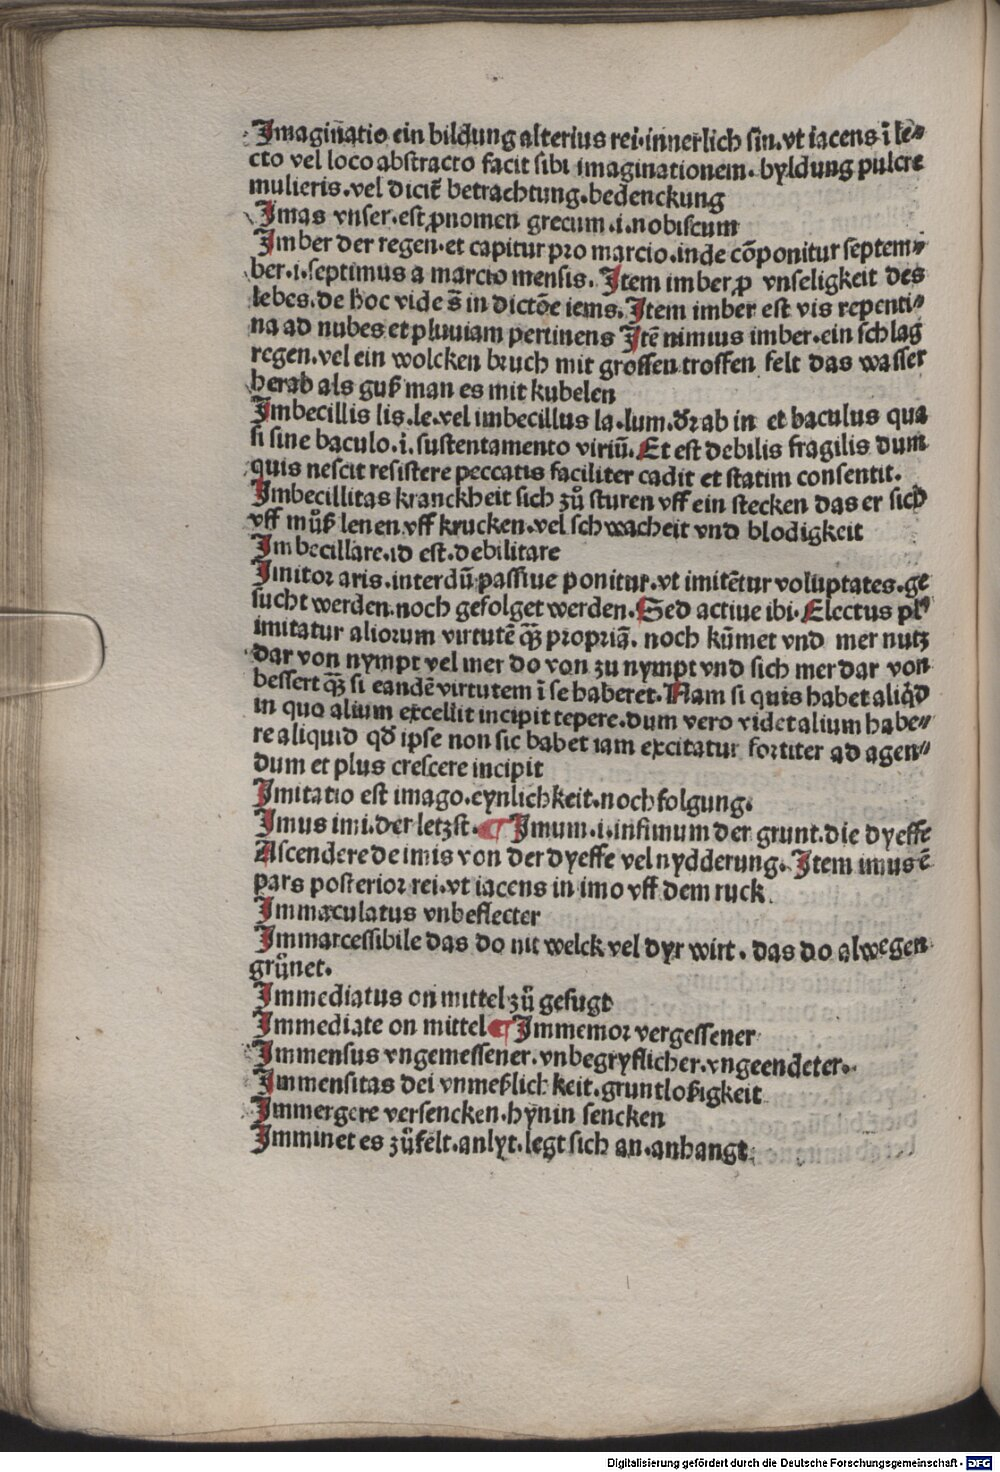 Imaginatio ein bildung alterius rei.innerlich sin.vt iacens ī le⸗
cto vel loco abstracto facit sibi imaginationem.byldung pulcre
mulieris.vel dicit̄ betrachtung.bedenckung
Imas vnser.est ꝓnomen grecum.i.nobiscum
Imber der regen.et capitur pro marcio.inde cōponitur septem⸗
ber.i.septimus a marcio mensis. Item imber ꝓ vnseligkeit des
lebēs.de hoc vide s̄ in dictōe iems.Item imber est vis repenti⸗
na ad nubes et pluuiam pertinens Itē nimius imber.ein schlag
regen.vel ein wolcken bruch mit grossen troffen felt das wasser
herab als guß man es mit kubelen
Imbecillis lis.le.vel imbecillus la.lum.dr̄ ab in et baculus qua
si sine baculo.i.sustentamento viriū.Et est debilis fragilis dum
quis nescit resistere peccatis faciliter cadit et statim consentit.
Imbecillitas kranckheit sich zuͦ sturen vff ein stecken das er sich
vff muͦß lenen vff krucken.vel schwacheit vnd blodigkeit
Imbecillare.id est.debilitare
Imitor aris.interdū passiue ponitur.vt imitētur voluptates.ge
sucht werden.noch gefolget werden.Sed actiue ibi.Electus plꝰ
imitatur aliorum virtutē qꝫ̄ propriā. noch kūmet vnd mer nutz
dar von nympt vel mer do von zu nympt vnd sich mer dar von
bessert qꝫ̄ si eandē virtutem ī se haberet.Nam si quis habet aliqd̄
in quo alium excellit incipit tepere.dum vero videt alium habe⸗
re aliquid qd̄ ipse non sic habet iam excitatur fortiter ad agen⸗
dum et plus crescere incipit
Imitatio est imago.eynlichkeit.nochfolgung.
Imus imi.der letzst. ¶ Imum.i.infimum der grunt.die dyeffe
Ascendere de imis von der dyeffe vel nydderung. Item imus ē
pars posterior rei.vt iacens in imo vff dem ruck.
Immaculatus vnbeflecter
Immarcessibile das do nit welck vel dyr wirt. das do alwegen
gruͦnet.
Immediatus on mittel zuͦ gefugt
Immediate on mittel ¶ Immemor vergessener
Immensus vngemessener.vnbegryflicher.vngeendeter.
Immensitas dei vnmeßlichkeit.gruntloßigkeit
Immergere versencken.hynin sencken
Imminet es zuͦfelt.anlyt.legt sich an.anhangt.
Digitalisierung gefördert durch die Deutsche Forschungsgemeinschaft - DFG